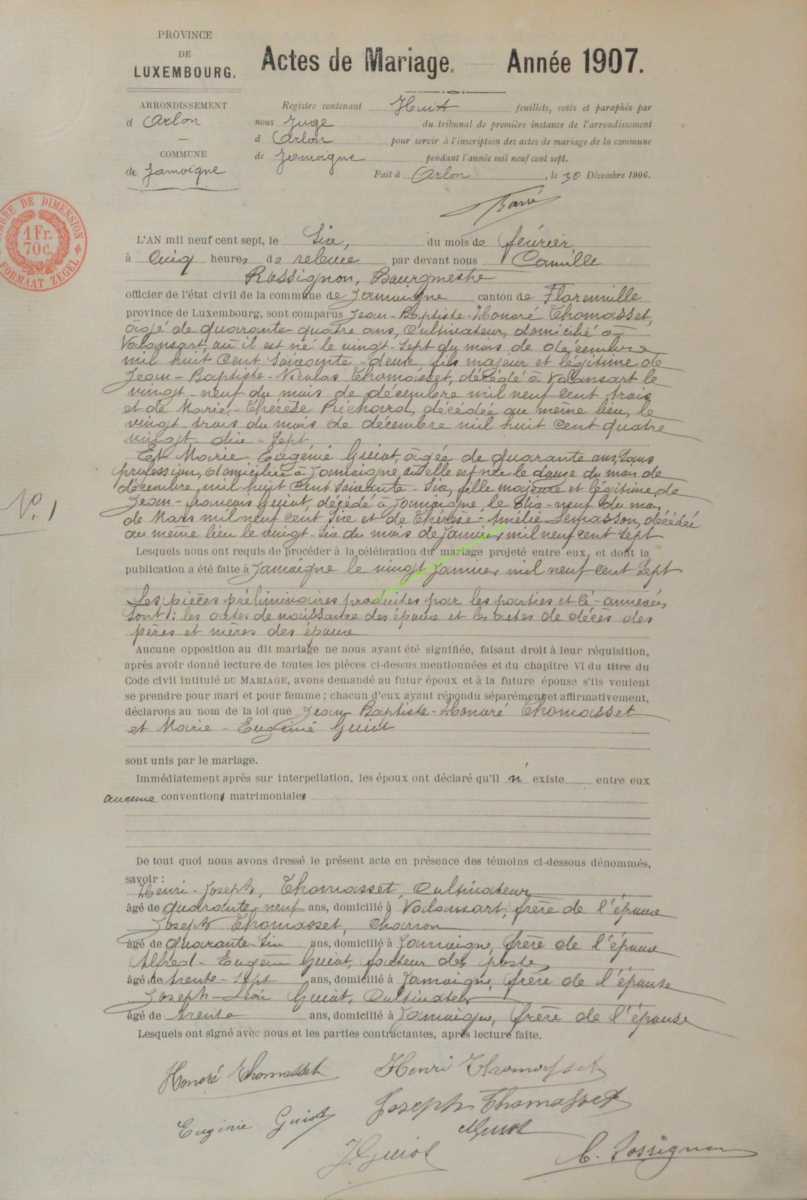 PROVINCE
DE
LUXEMBOURG.
Actes de Mariage. — Année 1907.
ARRONDISSEMENT
d'Arlon
COMMUNE
de Jamoigne
Registre contenant Huit feuillets, cotés et paraphés par
nous Juge du tribunal de première instance de l'arrondissement
d'Arlon pour servir à l'inscription des actes de mariage de la commune
de Jamoigne pendant l'année mil neuf cent sept.
Fait à Arlon, le 30 Décembre 1906.
DROIT DE DIMENSION
1 Fr.
70 c.
FORMAAT ZEGEL
N° 1
L'AN mil neuf cent sept, le Six, du mois de février
à Cinq heures de relevée par devant nous Camille
Rossignon, Bourgmestre
officier de l'état civil de la commune de Jamoigne canton de Florenville
province de Luxembourg, sont comparus Jean-Baptiste-Honoré Thomasset,
âgé de quarante quatre ans, Cultivateur, domicilié à
Valansart, où il est né le vingt sept du mois de décembre
mil huit cent soixante-deux, fils majeur et légitime de
Jean-Baptiste-Nicolas Thomasset, décédé à Valansart le
vingt-neuf du mois de décembre mil neuf cent trois
et de Marie-Thérèse Richard, décédée au même lieu, le
vingt trois du mois de décembre mil huit cent quatre
vingt dix-sept.
Et Marie Eugénie Guiot âgée de quarante ans, sans
profession, domiciliée à Jamoigne, où elle est née le douze du mois de
décembre, mil huit cent soixante-six, fille majeure et légitime de
Jean-françois Guiot, décédé à Jamoigne, le dix-neuf du mois
de Mars mil neuf cent six et de Thérèse-Amélie Lemasson, décédée
au même lieu le vingt-six du mois de Janvier mil neuf cent sept
Lesquels nous ont requis de procéder à la célébration du mariage projeté entre eux, et dont la
publication a été faite à Jamoigne le vingt Janvier mil neuf cent sept
Les pièces préliminaires produites par les parties et ci-annexées
sont: les actes de naissance des époux et les actes de décès des
pères et mères des époux
Aucune opposition au dit mariage ne nous ayant été signifiée, faisant droit à leur réquisition,
après avoir donné lecture de toutes les pièces ci-dessus mentionnées et du chapitre VI du titre du
Code civil intitulé DU MARIAGE, avons demandé au futur époux et à la future épouse s'ils veulent
se prendre pour mari et pour femme; chacun d'eux ayant répondu séparément et affirmativement,
déclarons au nom de la loi que Jean Baptiste-Honoré Thomasset
et Marie-Eugénie Guiot
sont unis par le mariage.
Immédiatement après sur interpellation, les époux ont déclaré qu'il n' existe entre eux
aucune conventions matrimoniales
De tout quoi nous avons dressé le présent acte en présence des témoins ci-dessous dénommés,
savoir:
Henri-Joseph, Thomasset, Cultivateur
âgé de quarante neuf ans, domicilié à Valansart, frère de l'époux
Joseph Thomasset, charron
âgé de quarante six ans, domicilié à Jamoigne, frère de l'époux
Alfred-Eugène Guiot, facteur des postes
âgé de trente-sept ans, domicilié à Jamoigne, frère de l'épouse
Joseph-Léon Guiot, Cultivateur
âgé de trente ans, domicilié à Jamoigne, frère de l'épouse
Lesquels ont signé avec nous et les parties contractantes, après lecture faite.
Honoré Thomasset Henri Thomasset
Eugénie Guiot Joseph Thomasset
J Guiot AGuiot C. Rossignon